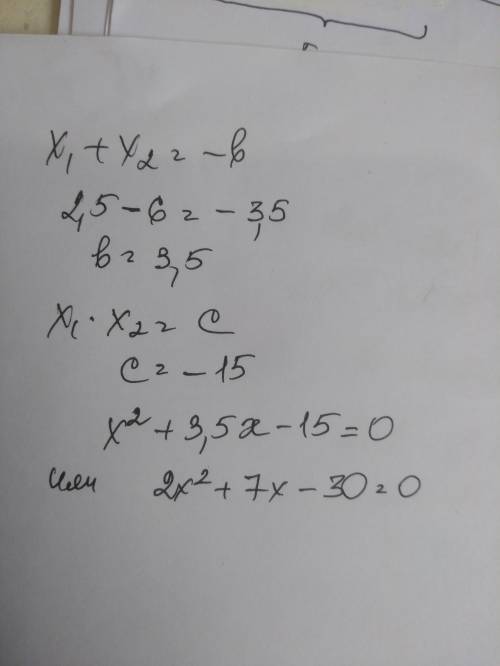 x₁ + x₂ = -b
2,5 - 6 = -3,5
b = 3,5
x₁ · x₂ = c
c = -15
x² + 3,5x - 15 = 0
или 2x² + 7x - 30 = 0